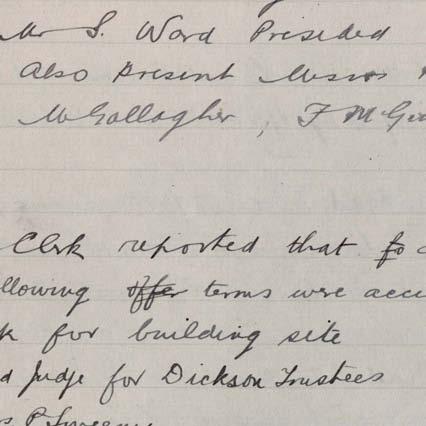 Mr S. Ward Presided
Also Present Messrs
McGallagher, F McG
Clerk reported that fo
llowing offer terms were acc
k for building site
d Judge for Dickson Trustees
s P Sweeney